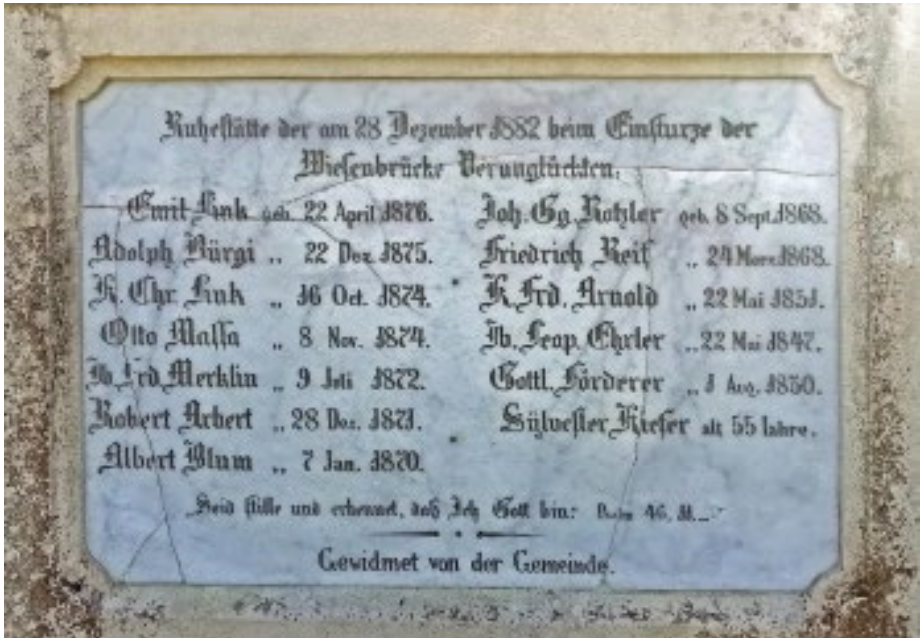 Ruhestätte der am 28 Dezember 1882 beim Einsturze der
Wiesenbrücke Verunglückten.
Emil Link geb. 22 April 1876.
Adolph Bürgi „ 22 Dez. 1875.
K. Chr. Link „ 16 Oct. 1874.
Otto Massa „ 8 Nov. 1874.
Jb. Frd. Merklin „ 9 Juli 1872.
Robert Arbert „ 28 Dez. 1871.
Albert Blum „ 7 Jan. 1870.
Joh. Gg. Rotzler geb. 8 Sept. 1868.
Friedrich Reif „ 24 Merz 1868.
K. Frd. Arnold „ 22 Mai 1851.
Jb. Leop. Ehrler „ 22 Mai 1847.
Gottl. Förderer „ 1 Aug. 1830.
Sylvester Kiefer alt 55 Jahre.
Seid stille und erkennet, daß Ich Gott bin: Psalm 46, 11.
Gewidmet von der Gemeinde.